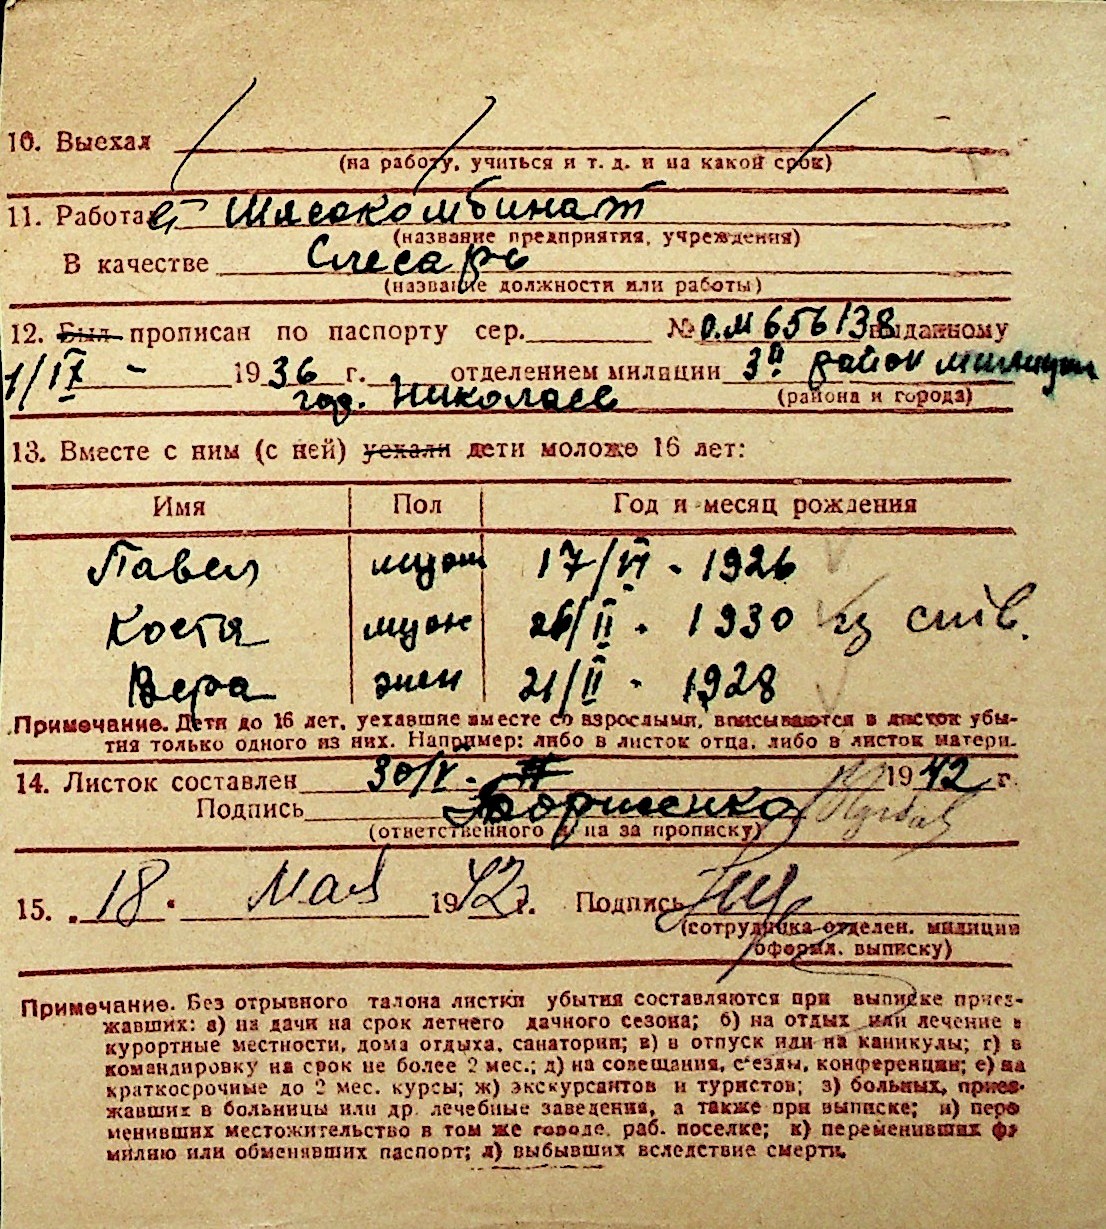 10. Выехал
(на работу, учиться и т. д. и на какой срок)
11. Работает Мясокомбинат
(название предприятия, учреждения)
В качестве Слесарь
(название должности или работы)
12. Был прописан по паспорту сер. № О.М 656138 выданному
1/IX - 1936 г. отделением милиции 3й район милиции
гор. Николаев (района и города)
13. Вместе с ним (с ней) уехали дети моложе 16 лет:
Имя Пол Год и месяц рождения
Павел муж 17/VI - 1926
Костя муж 26/II - 1930
Вера жен 21/II - 1928
Примечание. Дети до 16 лет, уехавшие вместе со взрослыми, вписываются в листок убы-
тия только одного из них. Например: либо в листок отца, либо в листок матери.
14. Листок составлен 30/V - 1942 г.
Подпись
(ответственного лица за прописку)
15. 18. Мая 1942 г. Подпись
(сотрудника отделен. милиции
оформ. выписку)
Примечание. Без отрывного талона листки убытия составляются при выписке приез-
жавших: а) на дачи на срок летнего дачного сезона; б) на отдых или лечение в
курортные местности, дома отдыха, санатории; в) в отпуск или на каникулы; г) в
командировку на срок не более 2 мес.; д) на совещания, съезды, конференции; е) на
краткосрочные до 2 мес. курсы; ж) экскурсантов и туристов; з) больных, приез-
жавших в больницы или др. лечебные заведения, а также при выписке; и) пере
менивших местожительство в том же городе, раб. поселке; к) переменивших фа
милию или обменявших паспорт; л) выбывших вследствие смерти.